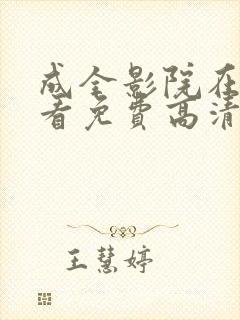 成全影院在
看免费高清
王慧婷